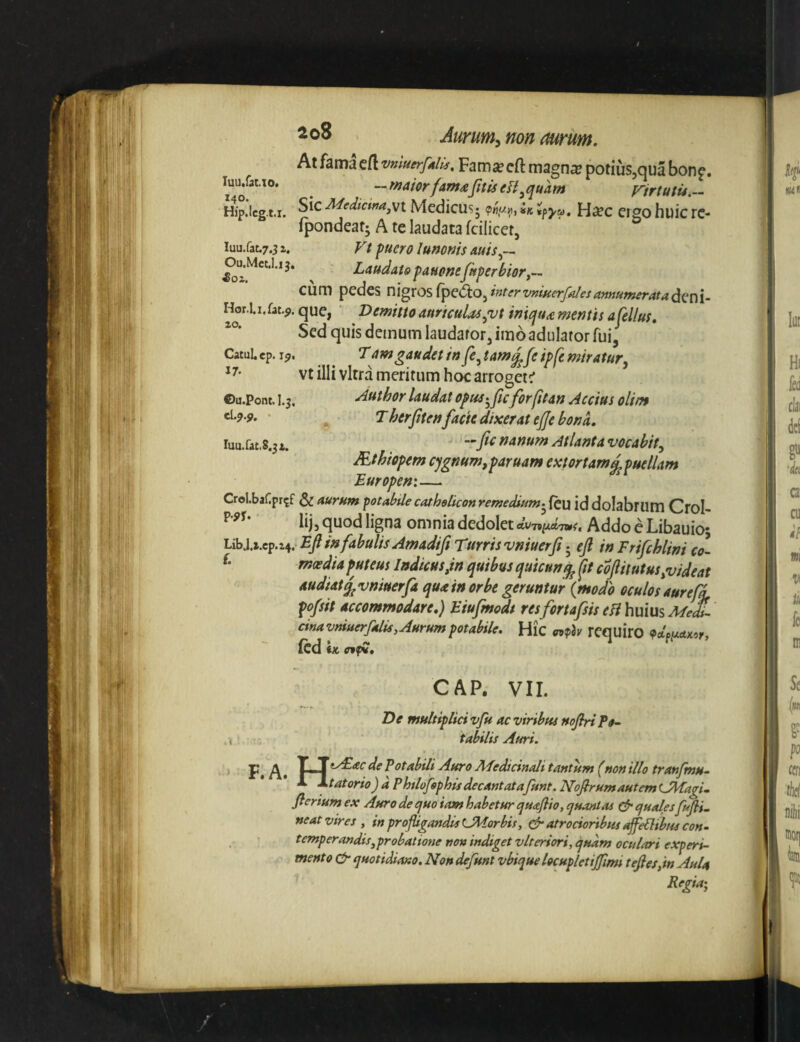 208 Aurum, non aurum.
At fama est vniuersalis. Famæ est magnæ potiùs, quā bonę.
Iuu.sat.10. — maior famæ sitis est, quàm Virtutis.—
140.
Hip.leg.t.1. Sic Medicina, vt Medicus;
Hæc ergo huic re-
spondeat; A te laudata scilicet,
Iuu.sat.7.32. Vt puero Iunonis auis,—
Ou.Met.l.13. Laudato pauone superbior,—
802.
cùm pedes nigros specto, inter vniuersales annumerata deni-
Hor.l.1.sat.9. que, Demitto auriculas, vt iniquæ mentis asellus.
20.
Sed quis demum laudator, imò adulator sui,
Catul. ep. 19. Tam gaudet in se, tamq́; se ipse miratur,
17. vt illi vltrà meritum hoc arroget?
Ou.Pont.l.3. Author laudat opus; sic forsitan Accius olim
el.9.9. Thersiten facie dixerat esse bonâ.
Iuu.sat.8.32. —sic nanum Atlanta vocabit,
Æthiopem cygnum, paruam extortamq́; puellam
Europen:—
Crol.bas.pręf. & aurum potabile catholicon remedium; seu id dolabrum Crol-
p.95. lij, quod ligna omnia dedolet Addo è Libauio;
Lib.l.2.ep.24. Est in fabulis Amadisi Turris vniuersi; est in Frischlini co-
f. mœdia puteus Indicus, in quibus quicunq́; sit cōstitutus, videat
audiatq́; vniuersa quæ in orbe geruntur (modò oculos auresq́;
possit accommodare.) Eiusmodi res fortassis est huius Medi-
cina vniuersalis, Aurum potabile. Hîc σοφὸν requiro φάρμακον,
sed ἐκ σοφῦ.
CAP. VII.
De multiplici vsu ac viribus nostri Po-
tabilis Auri.
F. A. HÆc de Potabili Auro Medicinali tantùm (non illo transmu-
tatorio) à Philosophis decantata sunt. Nostrum autem Magi-
sterium ex Auro de quo iam habetur quæstio, quantas & quales susti-
neat vires, in profligandis Morbis, & atrocioribus affectibus con-
temperandis, probatione non indiget vlteriori, quàm oculari experi-
mento & quotidiano. Non desunt vbique locupletissimi testes, in Aula
Regia;